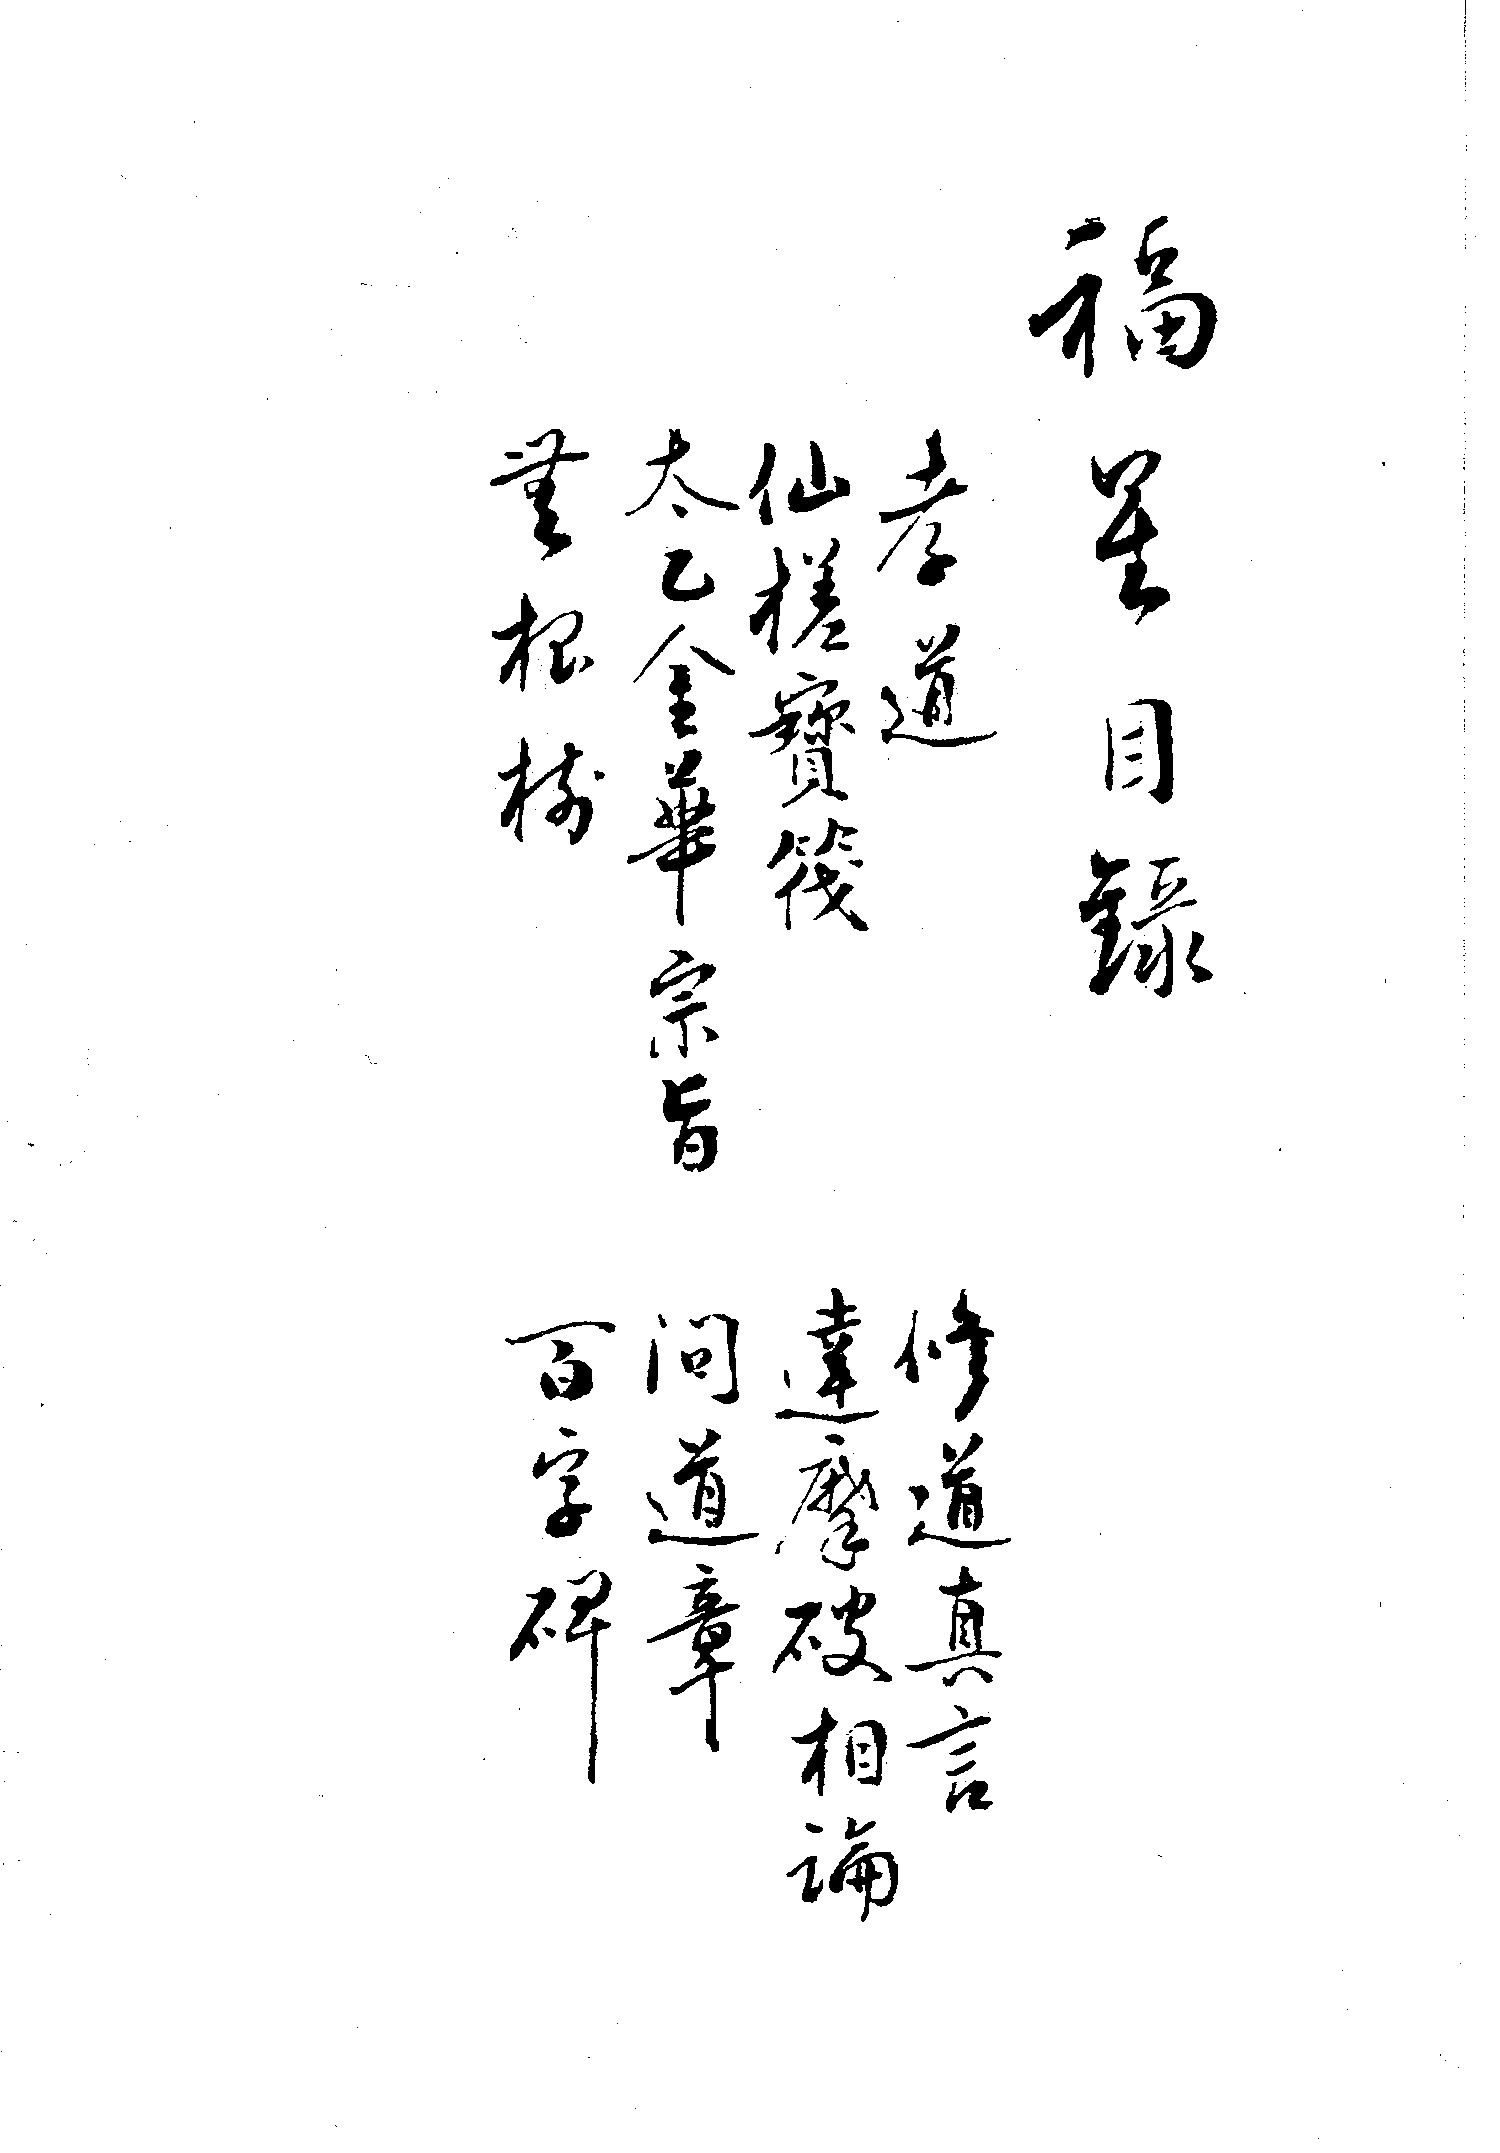 福星目錄
孝道
仙槎寶筏
太乙金華宗旨
無根樹
修道真言
達摩破相論
問道章
百字碑